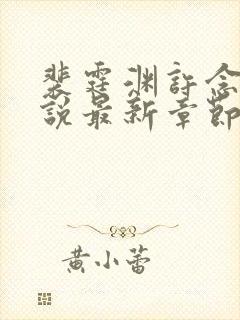 裴霆渊許念
說最新章節
黄小蕾